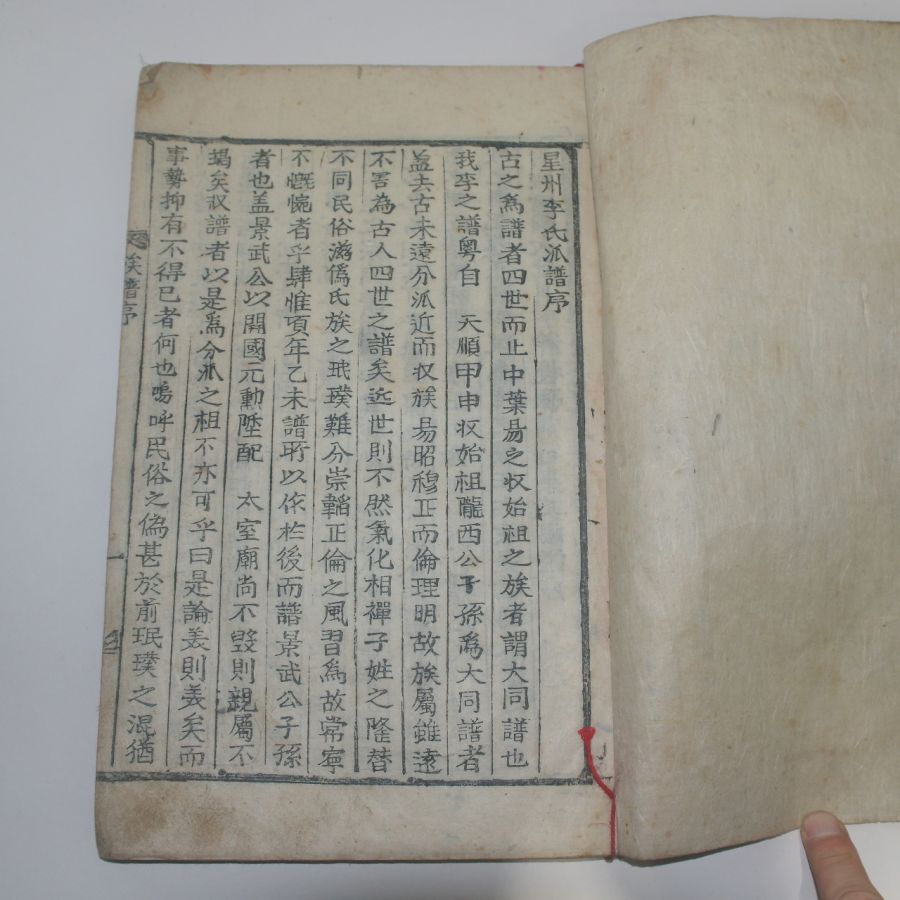 星州李氏派譜序
古之爲譜者四世而止中葉易之以始祖之族者謂大同譜也
我李之譜粤自 天順甲申以始祖隴西公子孫爲大同譜者
盖去古未遠分派近而収族易昭穆正而倫理明故族屬雖遠
不害為古人四世之譜矣近世則不然氣化相禪子姓之隆替
不同民俗滋僞氏族之珉璞難分崇韜正倫之風習爲故常寧
不慨惋者乎肆惟頃年乙未譜所以作於後而譜景武公子孫
者也盖景武公以開國元勳陞配 太室廟尚不毁則親屬不
竭矣収譜者以是爲分派之祖不亦可乎曰是論義則義矣而
事勢抑有不得已者何也嗚呼民俗之偽甚於前珉璞之混猶
族譜序
一